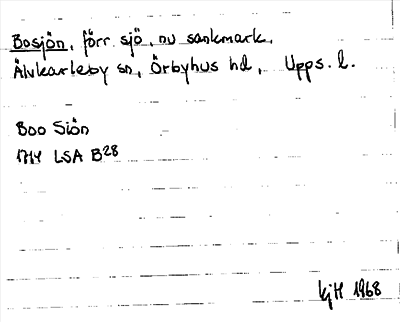 Bosjön, förr. sjö, nu sankmark.
Älvkarleby sn, Örbyhus hd, Upps. l.
Boo Siön
1714 LSA B28
kjH 1968